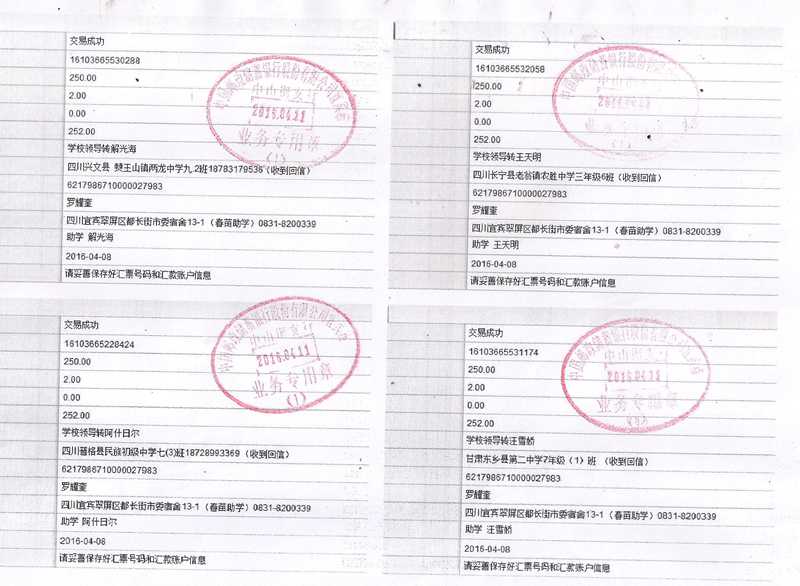 交易成功
16103665530288
250.00
2.00
0.00
252.00
学校领导转解光海
四川兴文县 僰王山镇两龙中学九.2班18783179536(收到回信)
6217986710000027983
罗耀奎
四川宜宾翠屏区都长街市委宿舍13-1(春苗助学)0831-8200339
助学 解光海
2016-04-08
请妥善保存好汇票号码和汇款账户信息
2016.04.11
业务专用章
(1)
交易成功
16103665532058
250.00
2.00
0.00
252.00
学校领导转王天明
四川长宁县老翁镇农胜中学三年级6班(收到回信)
6217986710000027983
罗耀奎
四川宜宾翠屏区都长街市委宿舍13-1(春苗助学)0831-8200339
助学 王天明
2016-04-08
请妥善保存好汇票号码和汇款账户信息
2016.04.11
交易成功
16103665228424
250.00
2.00
0.00
252.00
学校领导转阿什日尔
四川普格县民族初级中学七(3)班18728993369(收到回信)
6217986710000027983
罗耀奎
四川宜宾翠屏区都长街市委宿舍13-1(春苗助学)0831-8200339
助学 阿什日尔
2016-04-08
请妥善保存好汇票号码和汇款账户信息
2016.04.11
业务专用章
(1)
交易成功
16103665531174
250.00
2.00
0.00
252.00
学校领导转汪雪娇
甘肃东乡县第二中学7年级(1)班 (收到回信)
6217986710000027983
罗耀奎
四川宜宾翠屏区都长街市委宿舍13-1(春苗助学)0831-8200339
助学 汪雪娇
2016-04-08
请妥善保存好汇票号码和汇款账户信息
2016.04.11
业务专用章